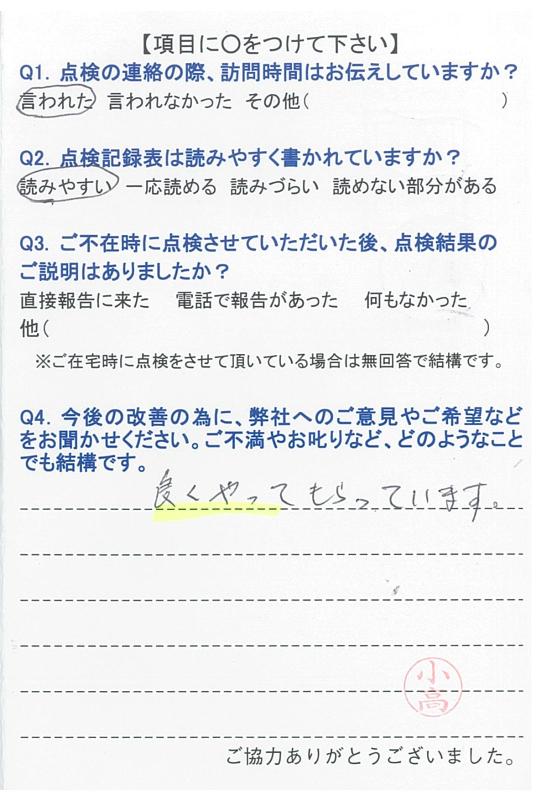 【項目に〇をつけて下さい】
Q1. 点検の連絡の際、訪問時間はお伝えしていますか？
言われた 言われなかった その他( )
Q2. 点検記録表は読みやすく書かれていますか？
読みやすい 一応読める 読みづらい 読めない部分がある
Q3. ご不在時に点検させていただいた後、点検結果の
ご説明はありましたか？
直接報告に来た 電話で報告があった 何もなかった
他( )
※ご在宅時に点検をさせて頂いている場合は無回答で結構です。
Q4. 今後の改善の為に、弊社へのご意見やご希望など
をお聞かせください。ご不満やお叱りなど、どのようなこと
でも結構です。
良くやってもらっています。
小高
ご協力ありがとうございました。